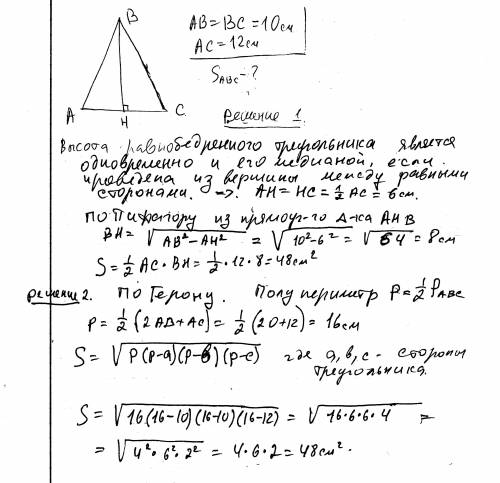 B
AB = BC = 10см
AC = 12см
S ABC - ?
A H C
Решение 1.
Высота равнобедренного треугольника является
одновременно и его медианой, если
проведена из вершины между равными
сторонами. -> AH = HC = 1/2 AC = 6см.
По Пифагору из прямоуг-го Δ-ка AHB
BH = √(AB² - AH²) = √(10² - 6²) = √64 = 8см
S = 1/2 AC · BH = 1/2 · 12 · 8 = 48см²
Решение 2. По Герону. Полу периметр P = 1/2 P ABC
P = 1/2 (2AB + AC) = 1/2 (20 + 12) = 16см
S = √(P(P-a)(P-b)(P-c)) где a, b, c - стороны
треугольника.
S = √(16(16-10)(16-10)(16-12)) = √(16·6·6·4) =
= √(4² · 6² · 2²) = 4 · 6 · 2 = 48см².